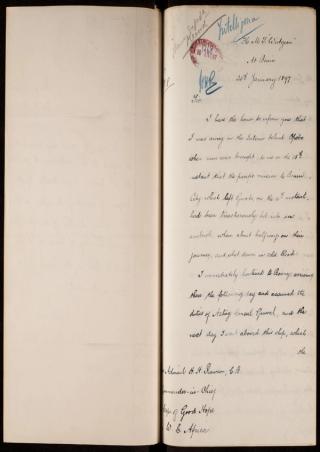 Intelligence
H.M.S. "Widgeon"
At Benin
24th January 1897
Sir
I have the honor to inform you that
I was away in the Interior behind Opobo
when news was brought to me on the 10th
instant that the pacific mission to Benin
City which left Gwato on the 4th instant,
had been treacherously led into an
ambush, when about halfway on their
journey, and shot down in cold blood.
I immediately hastened to Bonny arriving
there the following day and assumed the
duties of Acting Consul General, and the
next day I went aboard this ship, which
the
Admiral H. H. Rawson, C.B.
Commander-in-Chief
Cape of Good Hope
W. C. Africa